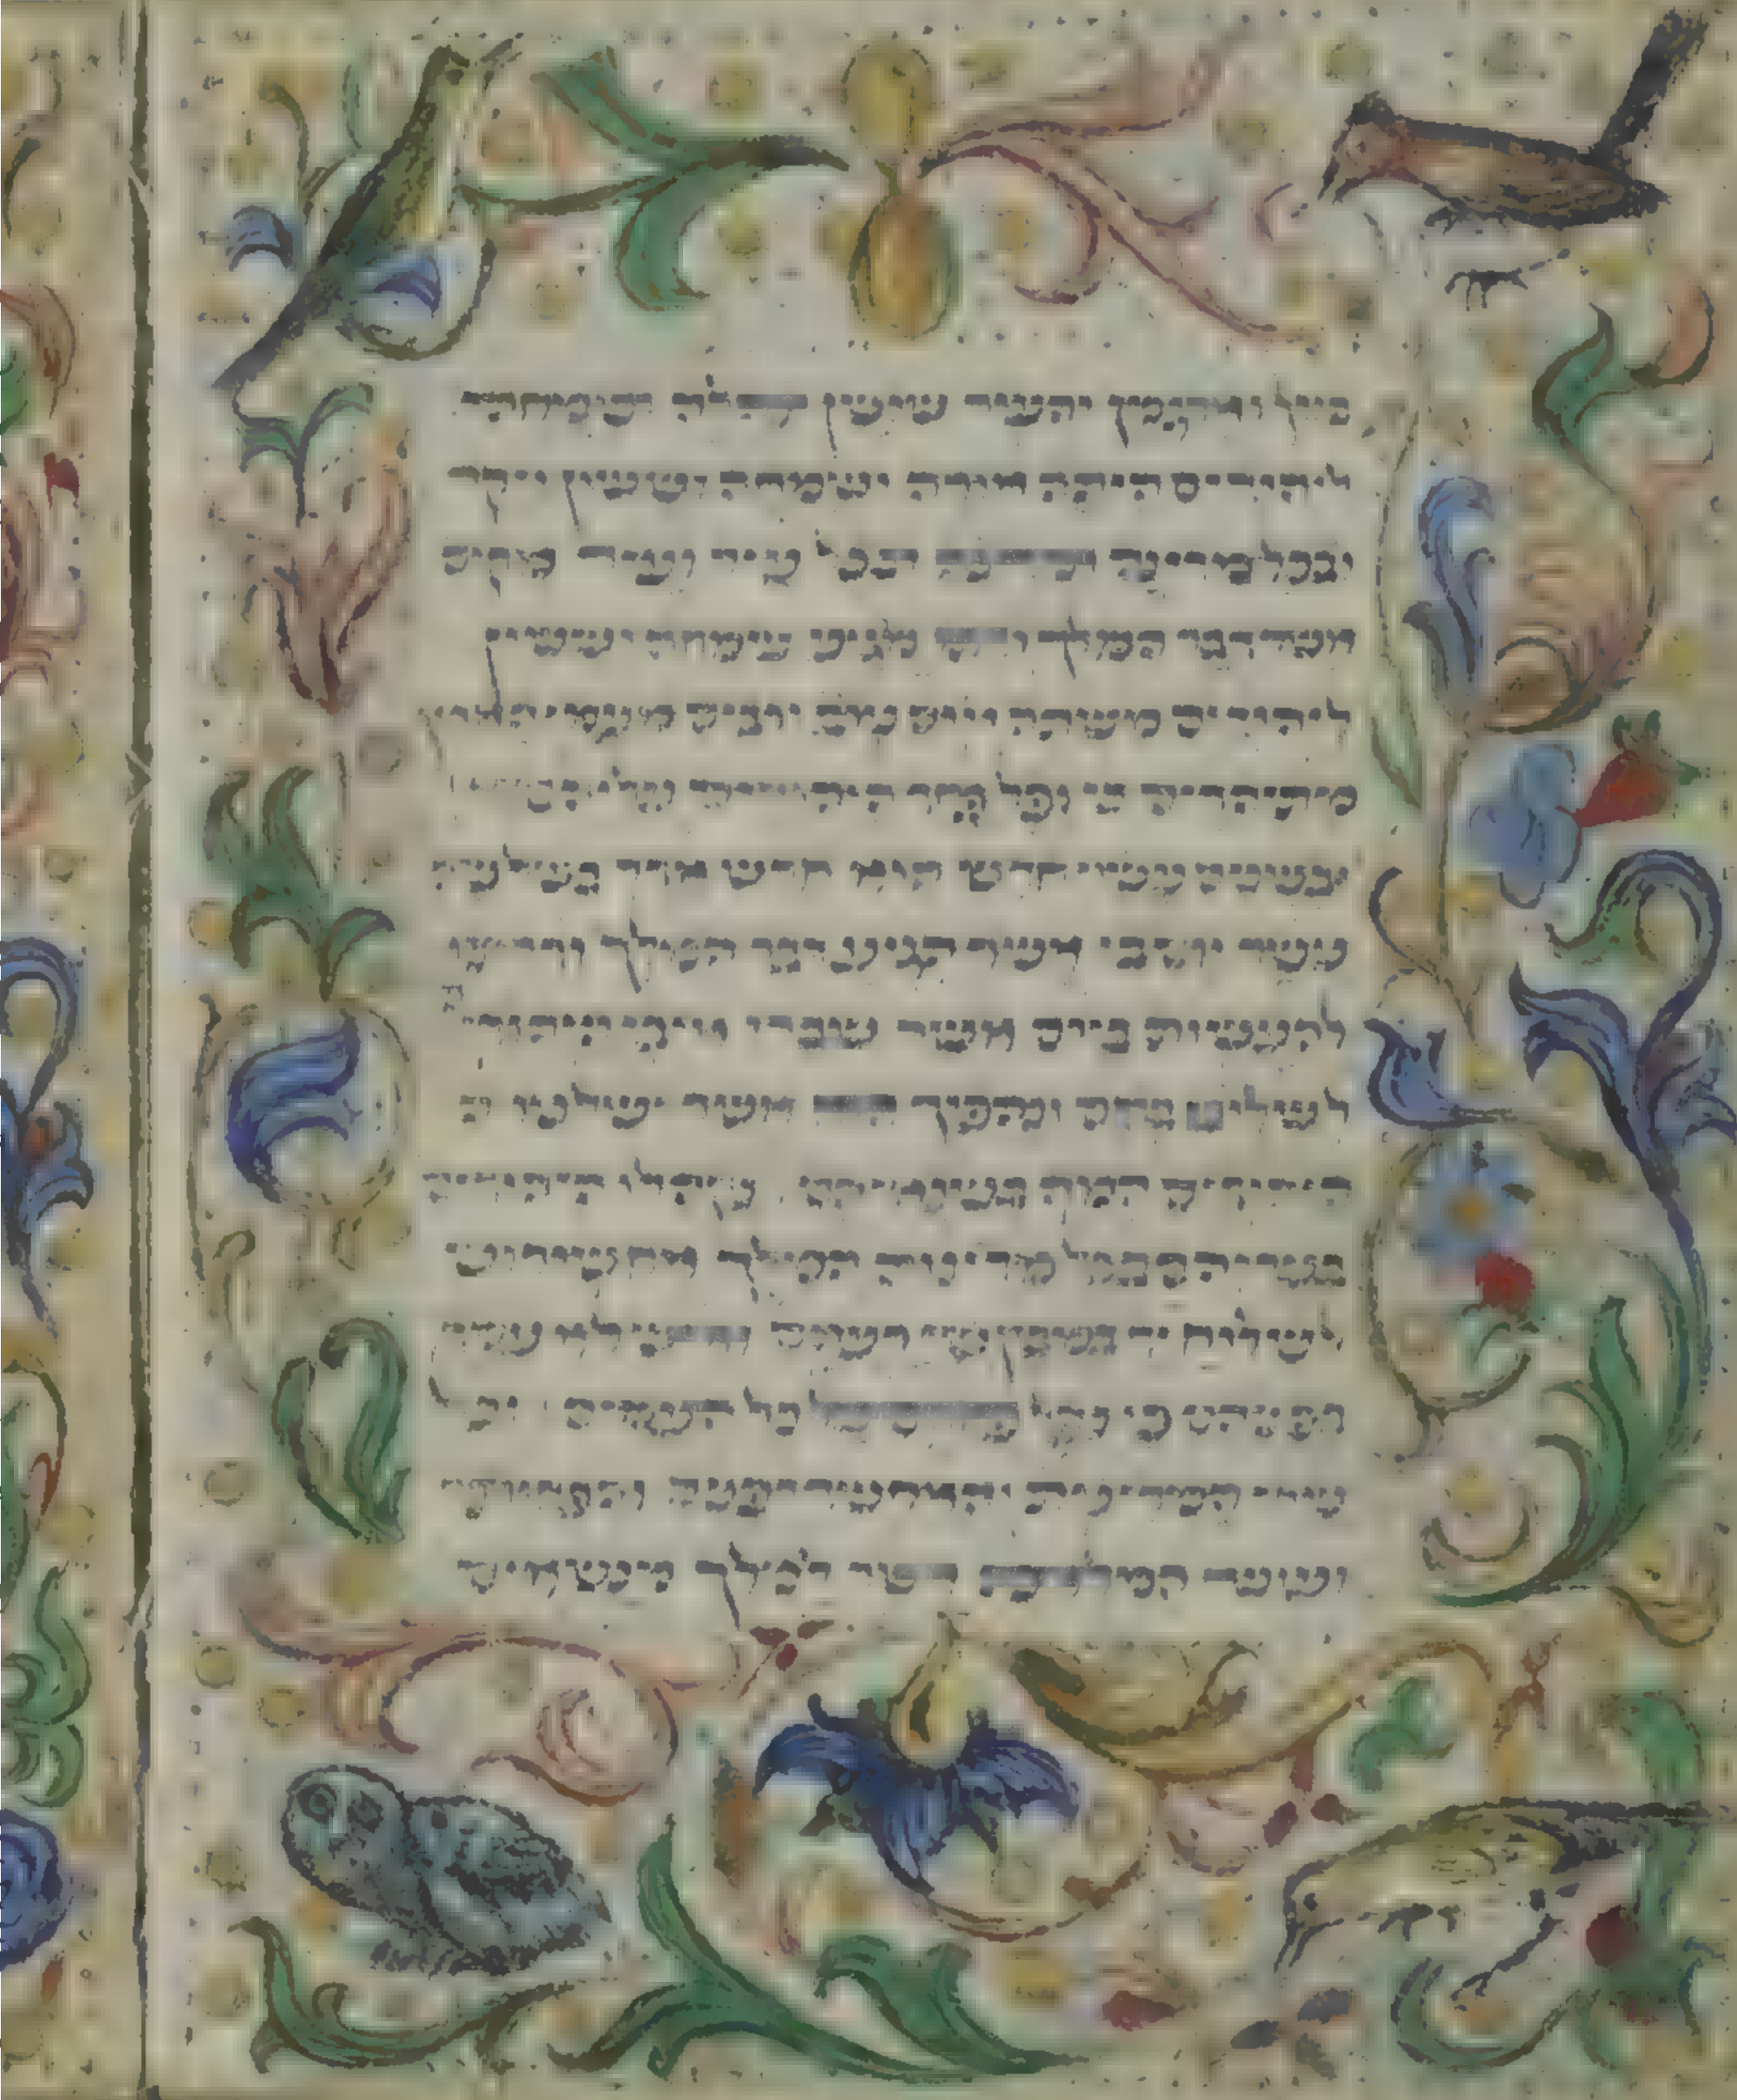 בוץ וארגמן והעיר שושן צהלה ושמחה
ליהודים היתה אורה ושמחה וששון ויקר
ובכל מדינה ומדינה ובכל עיר ועיר מקום
אשר דבר המלך ודתו מגיע שמחה וששון
ליהודים משתה ויום טוב ורבים מעמי הארץ
מתיהדים כי נפל פחד היהודים עליהם
ובשנים עשר חדש הוא חדש אדר בשלשה
עשר יום בו אשר הגיע דבר המלך ודתו
להעשות ביום אשר שברו איבי היהודים
לשלוט בהם ונהפוך הוא אשר ישלטו
היהודים המה בשנאיהם נקהלו היהודים
בעריהם בכל מדינות המלך אחשורוש
לשלח יד במבקשי רעתם ואיש לא עמד
לפניהם כי נפל פחדם על כל העמים וכל
שרי המדינות והאחשדרפנים והפחות
ועשי המלאכה אשר למלך מנשאים